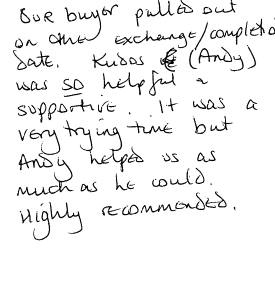 Our buyer pulled out
on the exchange/completio
date. Kudos (Andy)
was so helpful &
supportive. It was a
very trying time but
Andy helped us as
much as he could.
Highly recommended.